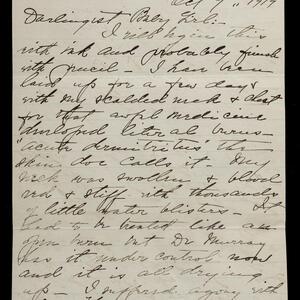 Oct 9, 1919
Darlingest Baby Girl:-
I will begin this
with ink and probably finish
with pencil - I have been
laid up for a few days
with my scalded neck & chest
for that awful medicine
developed literal burns -
"acute dermitritus" the
skin doc calls it. My
neck was swollen & blood
red & stiff with thousands
of little water blisters - It
had to be treated like an
open burn but Dr Murray
has it under control now
and it is all drying
up - I suffered agony with